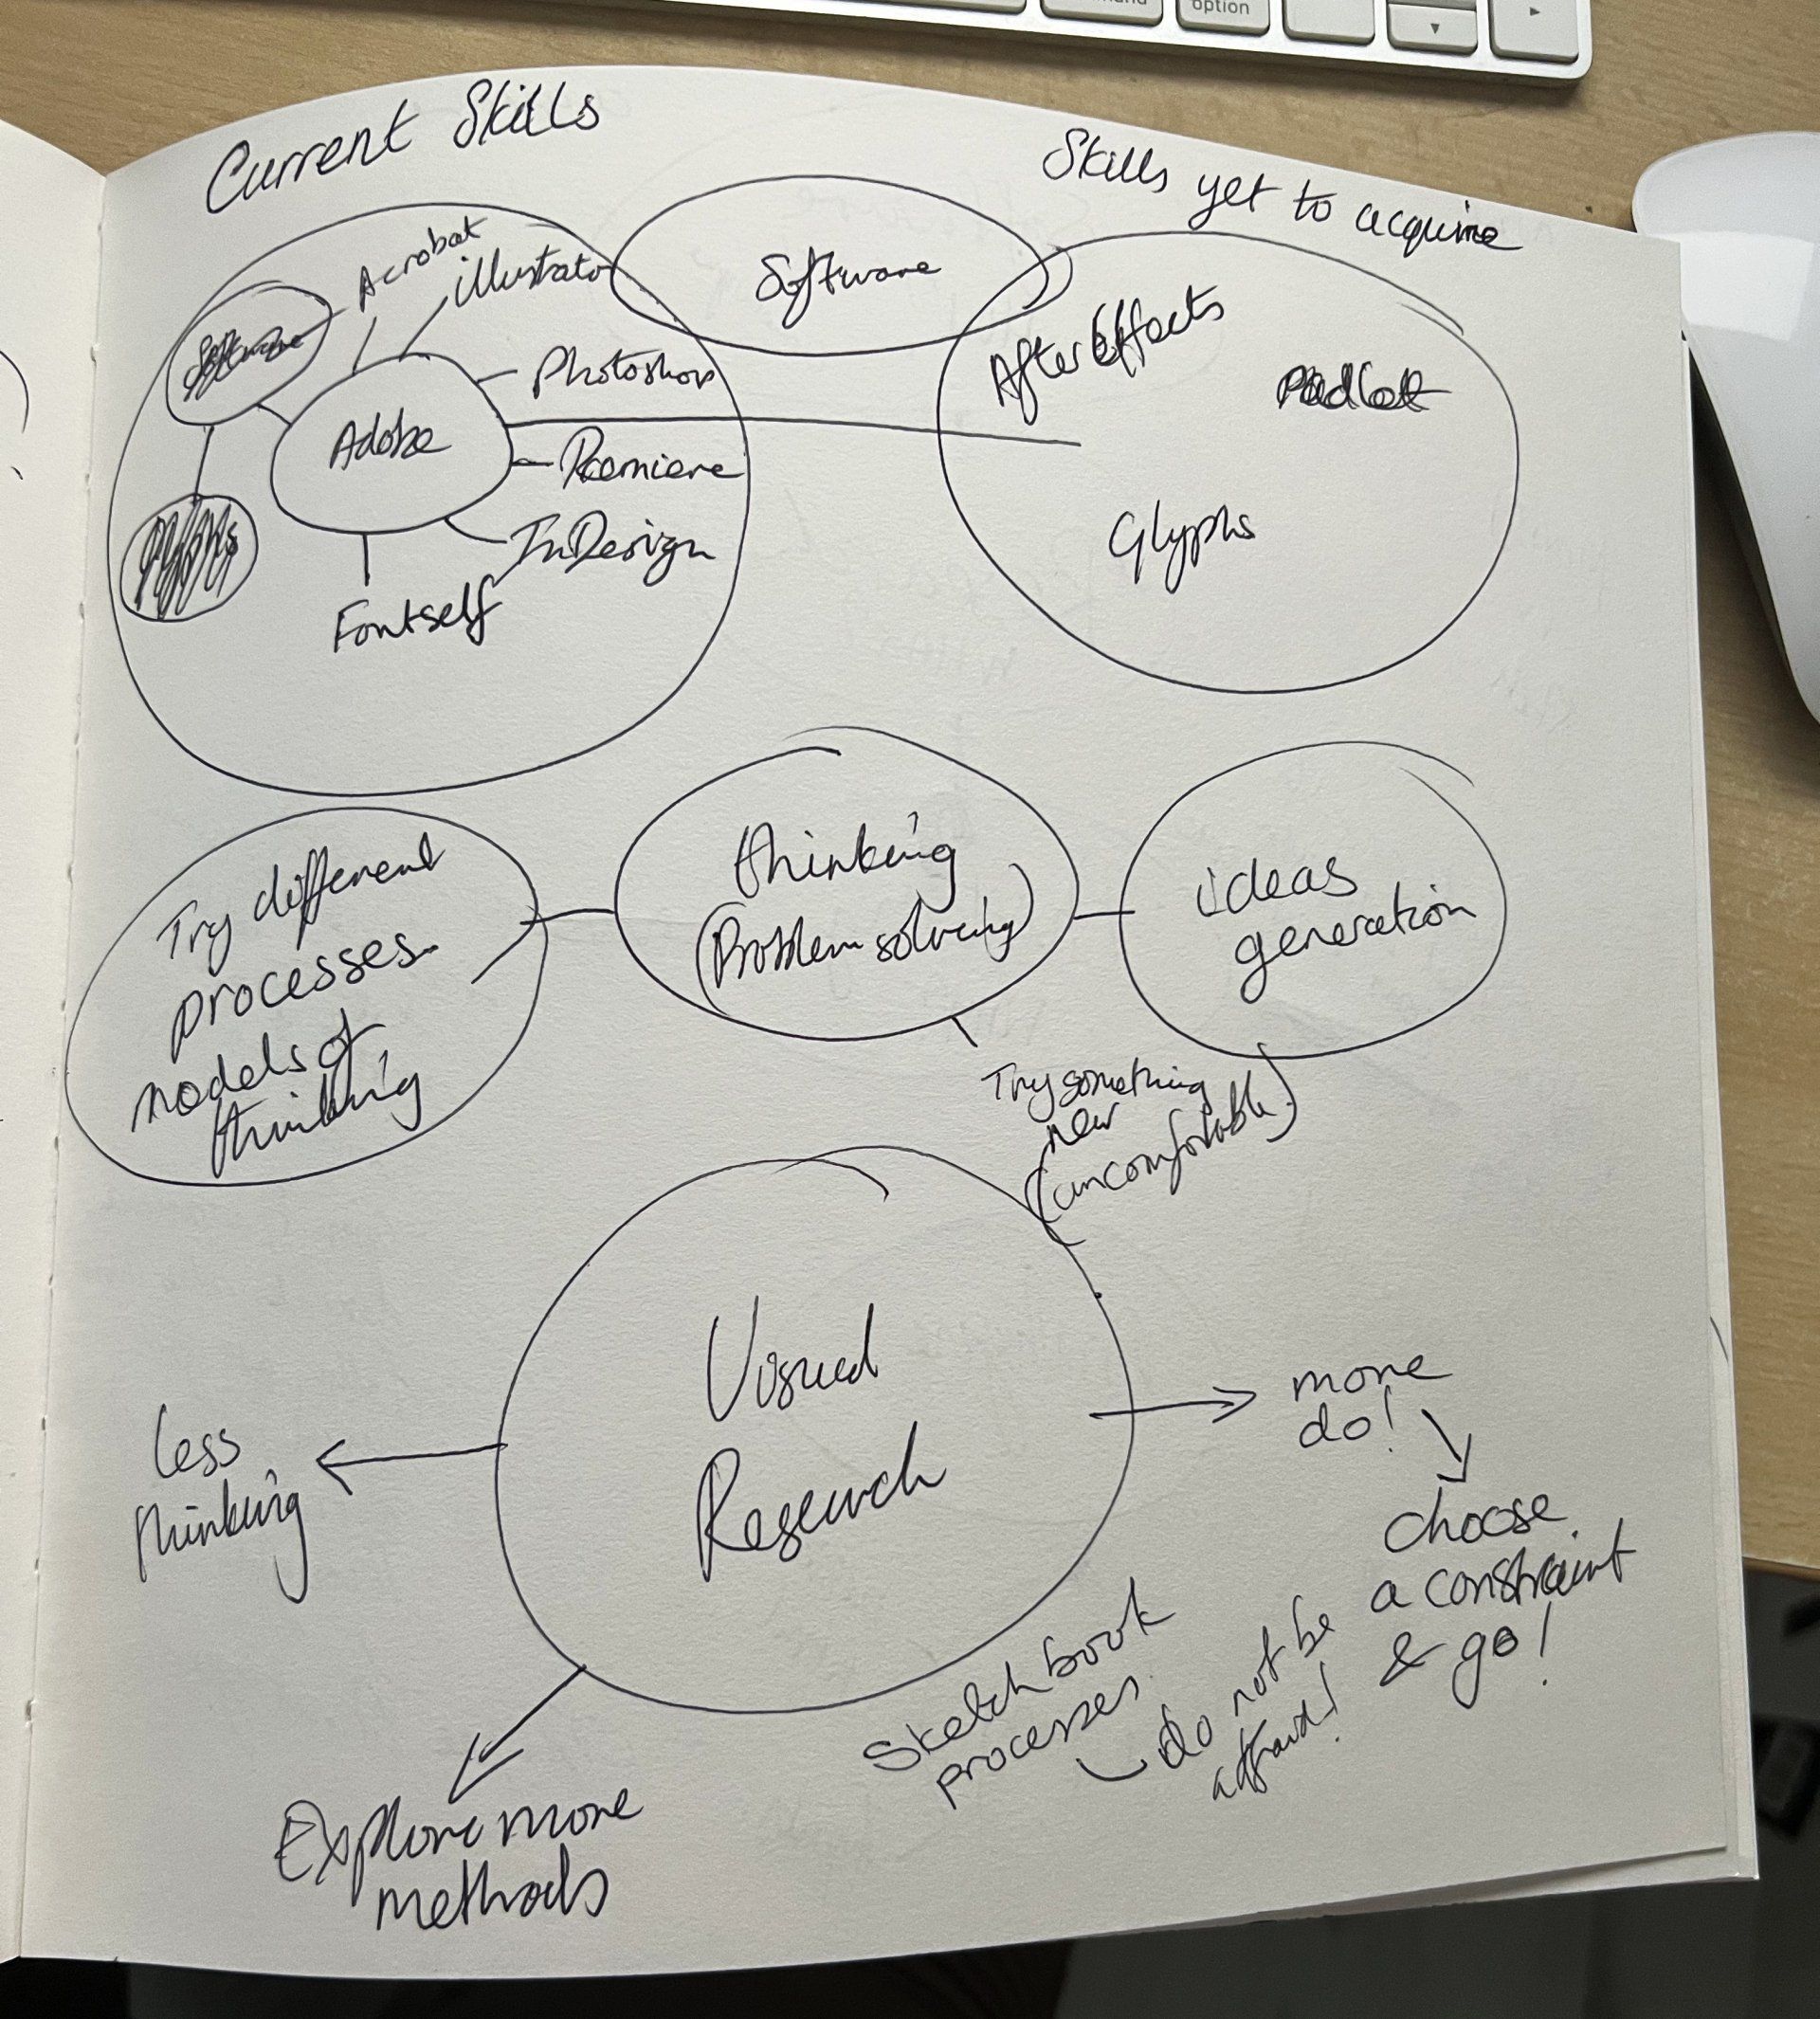 option
Current Skills
Skills yet to acquire
Acrobat
illustrator
Software
Software
After Effects
Padlet
Photoshop
Adobe
Premiere
Glyphs
InDesign
Glyphs
Fontself
Try different
processes.
models of
thinking
thinking
(Problem solving)
ideas
generation
Try something
new
(uncomfortable)
Visual
Research
less
thinking
more
do!
choose
a constraint
& go!
Sketchbook
processes.
do not be
afraid!
Explore more
methods